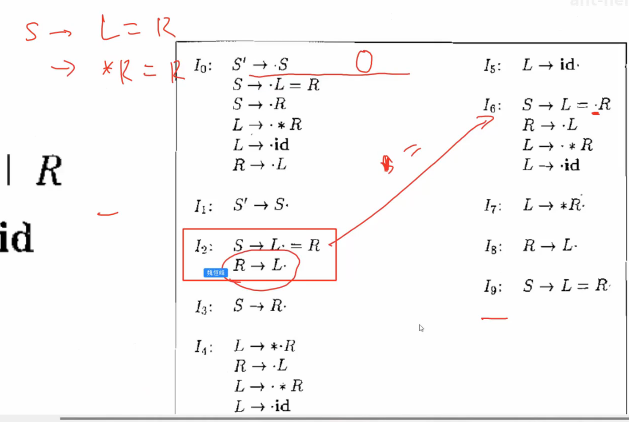 S → L = R
→ *R = R
| R
id
I₀: S′ → ·S 0
S → ·L = R
S → ·R
L → · * R
L → ·id
R → ·L
I₁: S′ → S·
I₂: S → L· = R
R → L·
I₃: S → R·
I₄: L → *·R
R → ·L
L → · * R
L → ·id
=
I₅: L → id·
I₆: S → L = ·R
R → ·L
L → · * R
L → ·id
I₇: L → *R·
I₈: R → L·
I₉: S → L = R·